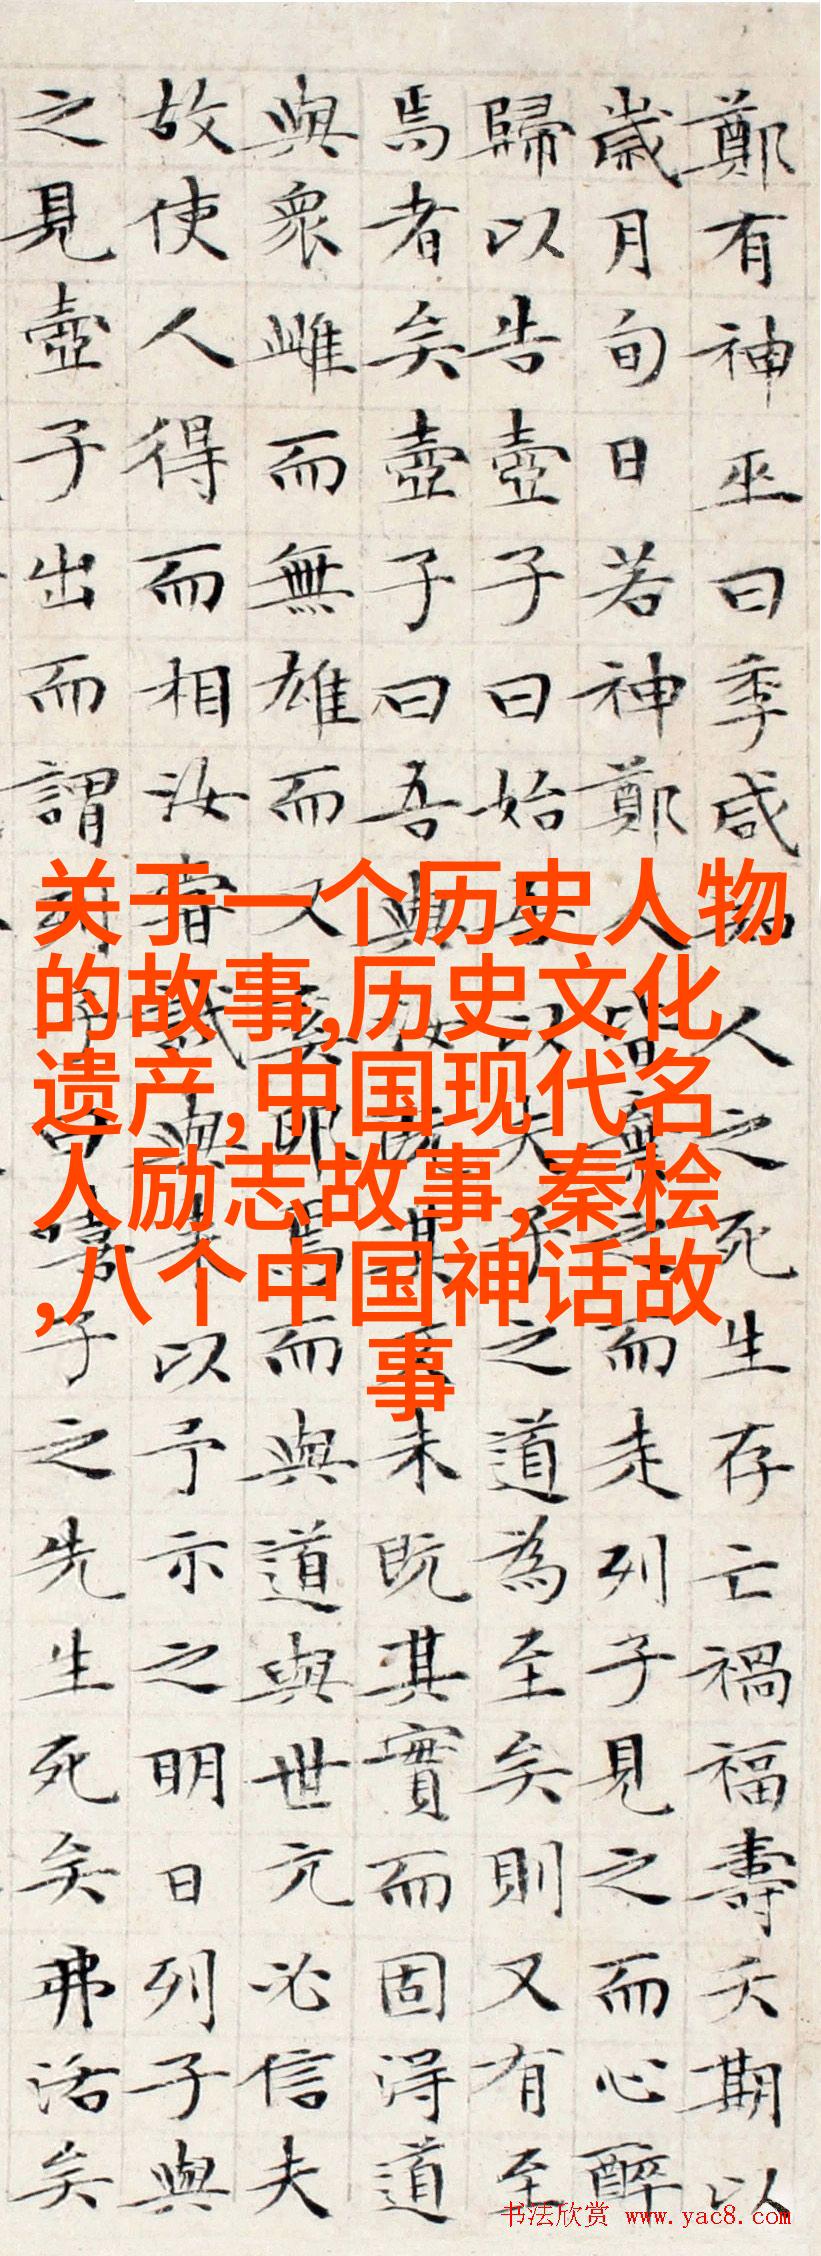 鄭有神巫曰季咸知人之死生存亡禍福壽夭期以
歲月旬日若神鄭人皆棄之而走列子見之而心醉
歸以告壺子曰始吾以夫子之道為至矣則又有至
焉者矣壺子曰吾與汝既其文未既其實而固得道
與眾雌而無雄而又奚卵焉而與道與世亢必信夫
故使人得而相汝嘗試與來以予示之明日列子與
之見壺子出而謂列子曰嘻子之先生死矣弗活矣
关于一个历史人物
的故事,历史文化
遗产,中国现代名
人励志故事,秦桧
,八个中国神话故
事
书法欣赏 www.yac8.com